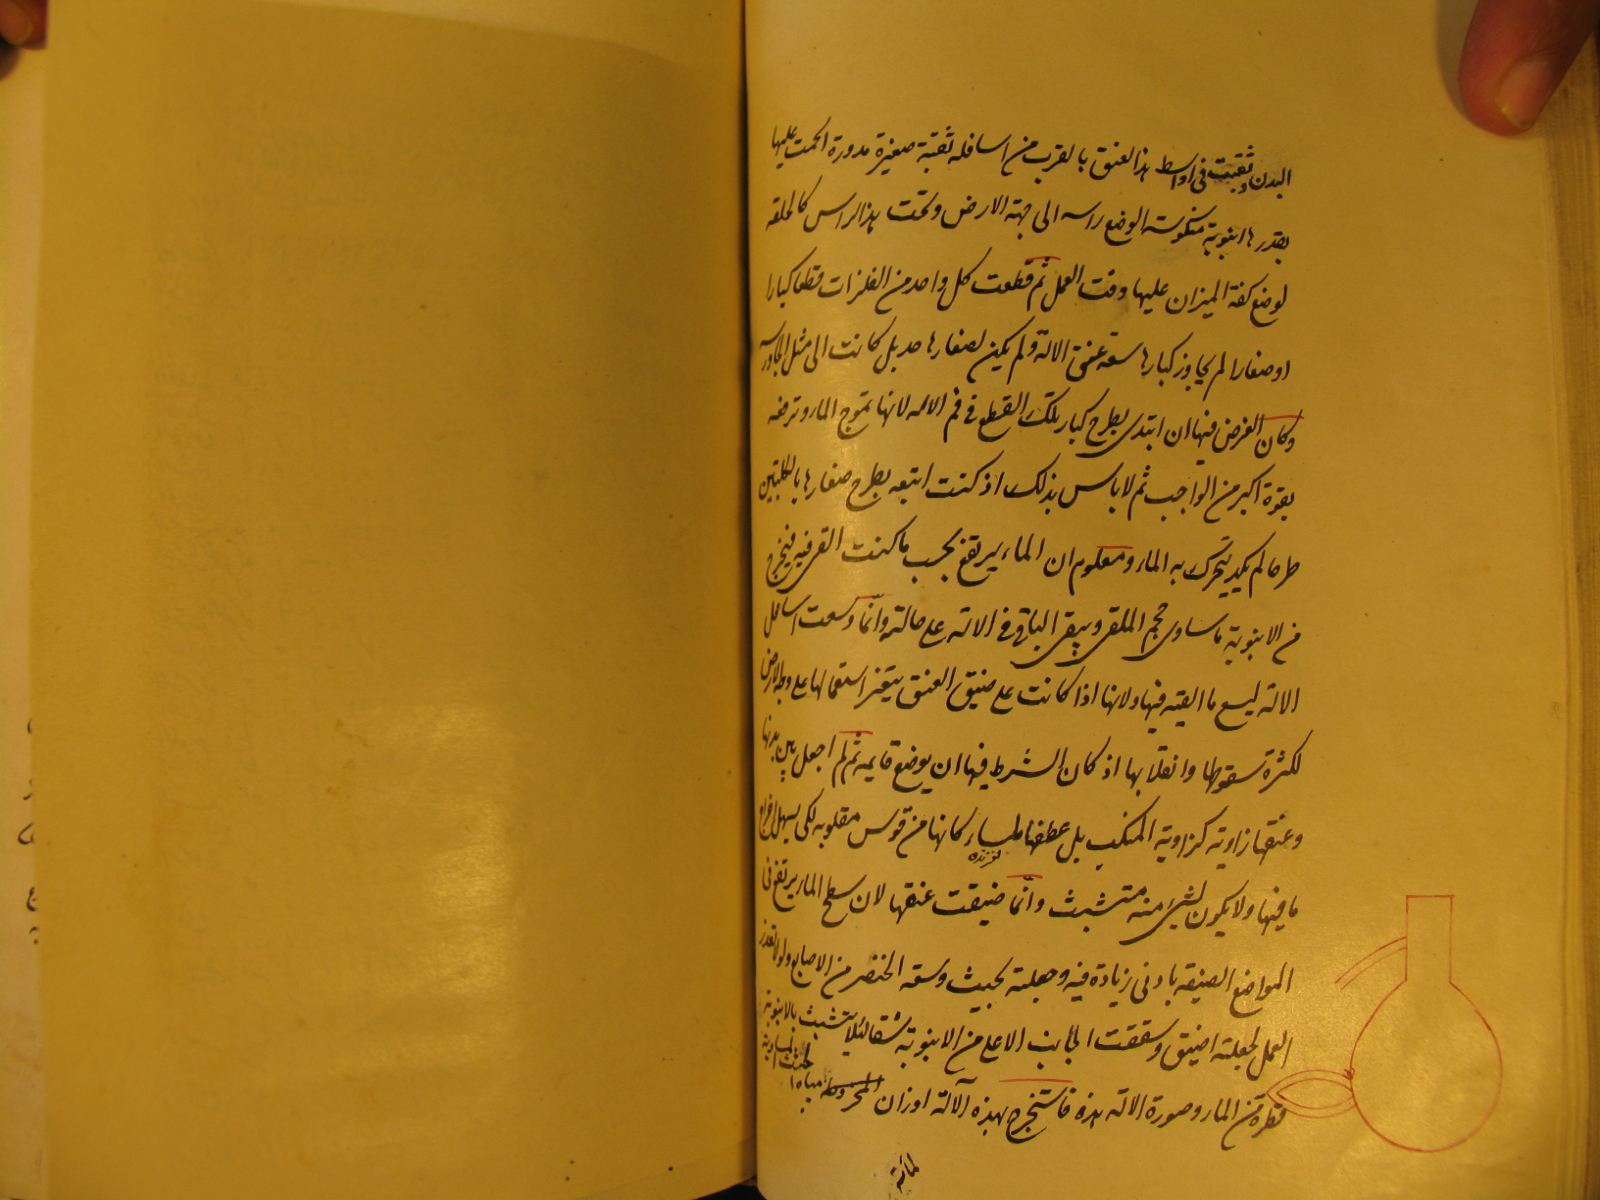 البدن وثقبت فى اواسط هذا العنق بالقرب من اسافله ثقبة صغيرة مدورة الحمت عليها
بقدرها انبوبة منكوسة الوضع راسه الى جهة الارض وتحت هذا الراس كالحلقه
لوضع كفة الميزان عليها وقت العمل ثم قطعت كل واحد من الفلزات قطعا كبارا
او صغارا لم يجاوز كبارها سعة عنق الالة ولم يكن لصغارها حد بل كانت الى مثل الجاورسه
وكان الغرض فيها ان ابتدى بطرح كبار تلك القطع فى فم الاله لانها تموج الماء وترفعه
بقوة اكبر من الواجب ثم لا باس بذلك اذ كنت اتبعه بطرح صغارها بالكلبتين
طرحا لم يكد يتحرك به الماء ومعلوم ان الماء يرتفع بحسب ما كنت القى فيه فيخرج
من الانبوبة ما ساوى حجم الملقى ويبقى الباقى فى الالة على حالته وانما وسعت اسافل
الالة ليسع ما القيه فيها ولانها اذا كانت على ضيق العنق يتعذر استعمالها على وجه الارض
لكثرة سقوطها وانقلابها اذ كان الشرط فيها ان يوضع قايمه ثم لم اجعل بين بدنها
وعنقها زاوية كزاوية المنكب بل عطفها ملساء كانها من قوس مقلوبه لكى يسهل افراغ
ما فيها ولا يكون لشىء منه متشبث وانما ضيقت عنقها لان سطح الماء يرتفع فى
المواضع الضيقه بادنى زيادة فيه وجعلته بحيث وسعه الخنصر من الاصابع ولولا تعذر
العمل لجعلته اضيق وشققت الجانب الاعلى من الانبوبة شقا لئلا يتشبث بالانبوبة
قطرة من الماء وصورة الالة هذه فاستخرج بهذه الآلة اوزان المخروطه مياه
لمائة